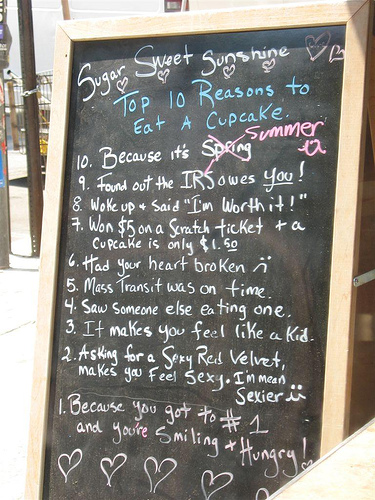 Sugar Sweet Sunshine
Top 10 Reasons to
Eat A Cupcake.
Summer
10. Because it's Spring
9. Found out the IRS owes you!
8. Woke up + said "I'm Worth it!"
7. Won $5 on a Scratch ticket + a
Cupcake is only $1.50
6. Had your heart broken
5. Mass Transit was on time.
4. Saw someone else eating one.
3. It makes you feel like a Kid.
2. Asking for a Sexy Red Velvet,
makes you Feel Sexy. I'm mean
Sexier
1. Because you got to # 1
and you're Smiling + Hungry!